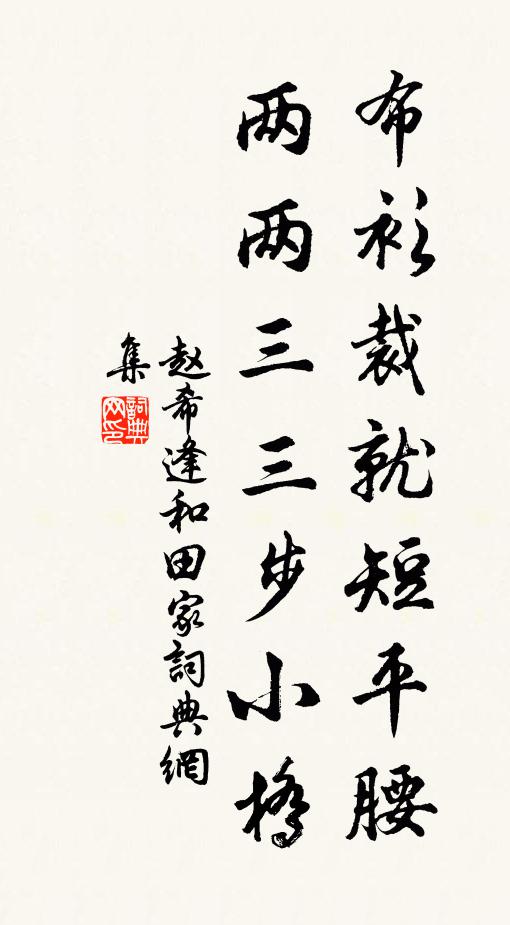 布衫裁就短平腰
两两三三步小橋
赵希逢和田家詞典網
集
詞典网印